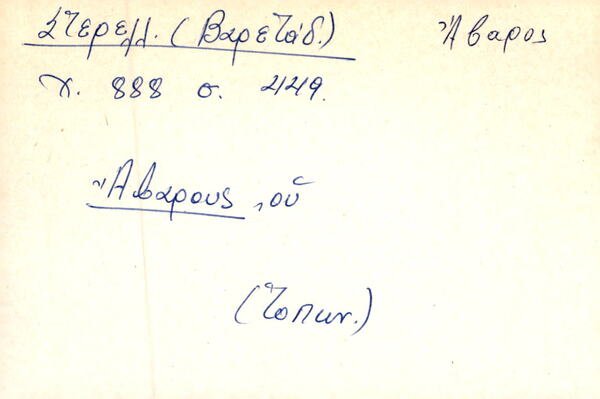 Στερελλ. (Βαρετάδ.) Ἄβαρος
χ. 888 σ. 449.
Ἄβαρους, οὗ
(Τοπων.)